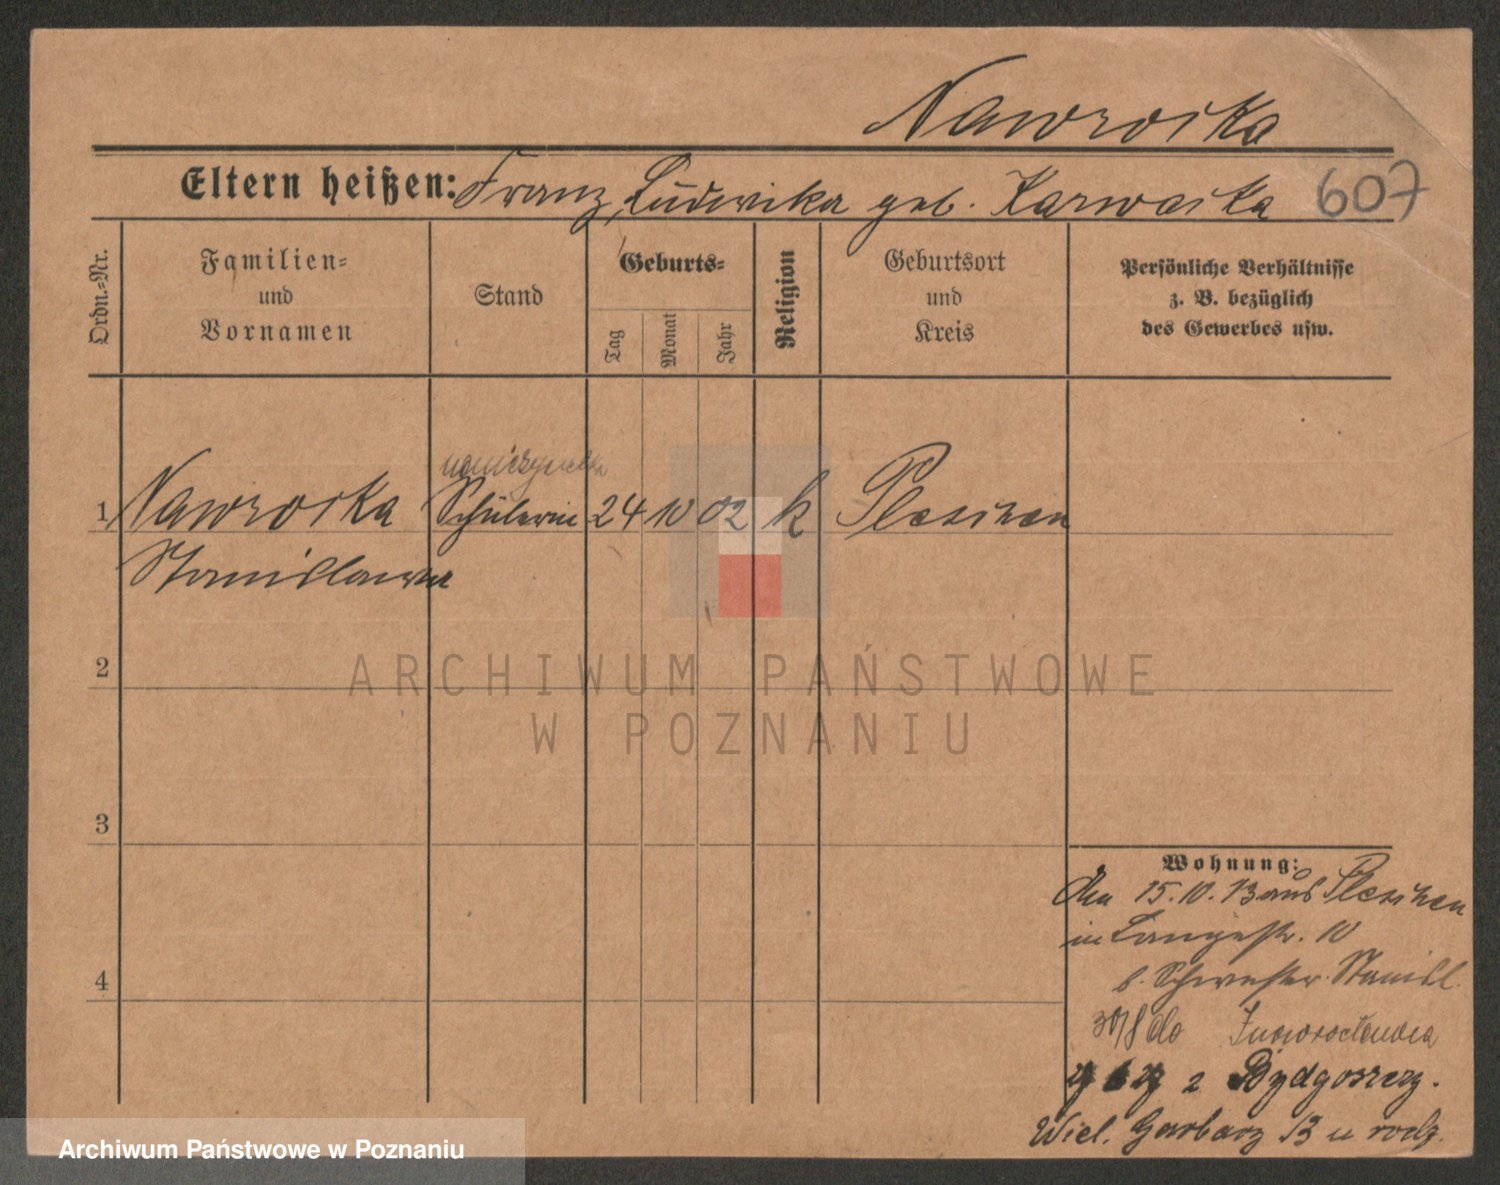 Nawrocka
Eltern heißen: Franz, Ludwika geb. Karwacka 607
Ordn.-Nr.
Familien-
und
Vornamen
Stand
Geburts-
Tag
Monat
Jahr
Religion
Geburtsort
und
Kreis
Persönliche Verhältnisse
z. B. bezüglich
des Gewerbes usw.
nauczycielka
1 Nawrocka Schülerin 24 10 02 k Pleschen
Stanislawa
2
3
4
Wohnung:
Am 15.10.13 aus Pleschen
in Langestr. 10
b. Schwester Stanisl.
30/8 do Inowrocławia
z Bydgoszczy.
Wiel. Garbary 13 u rodz.
ARCHIWUM PAŃSTWOWE
W POZNANIU
Archiwum Państwowe w Poznaniu